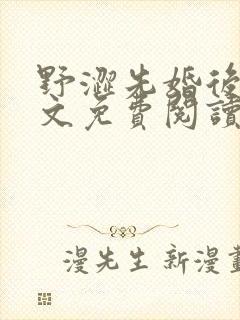 野澀先婚後
文免費閱讀
漫先生新漫畫